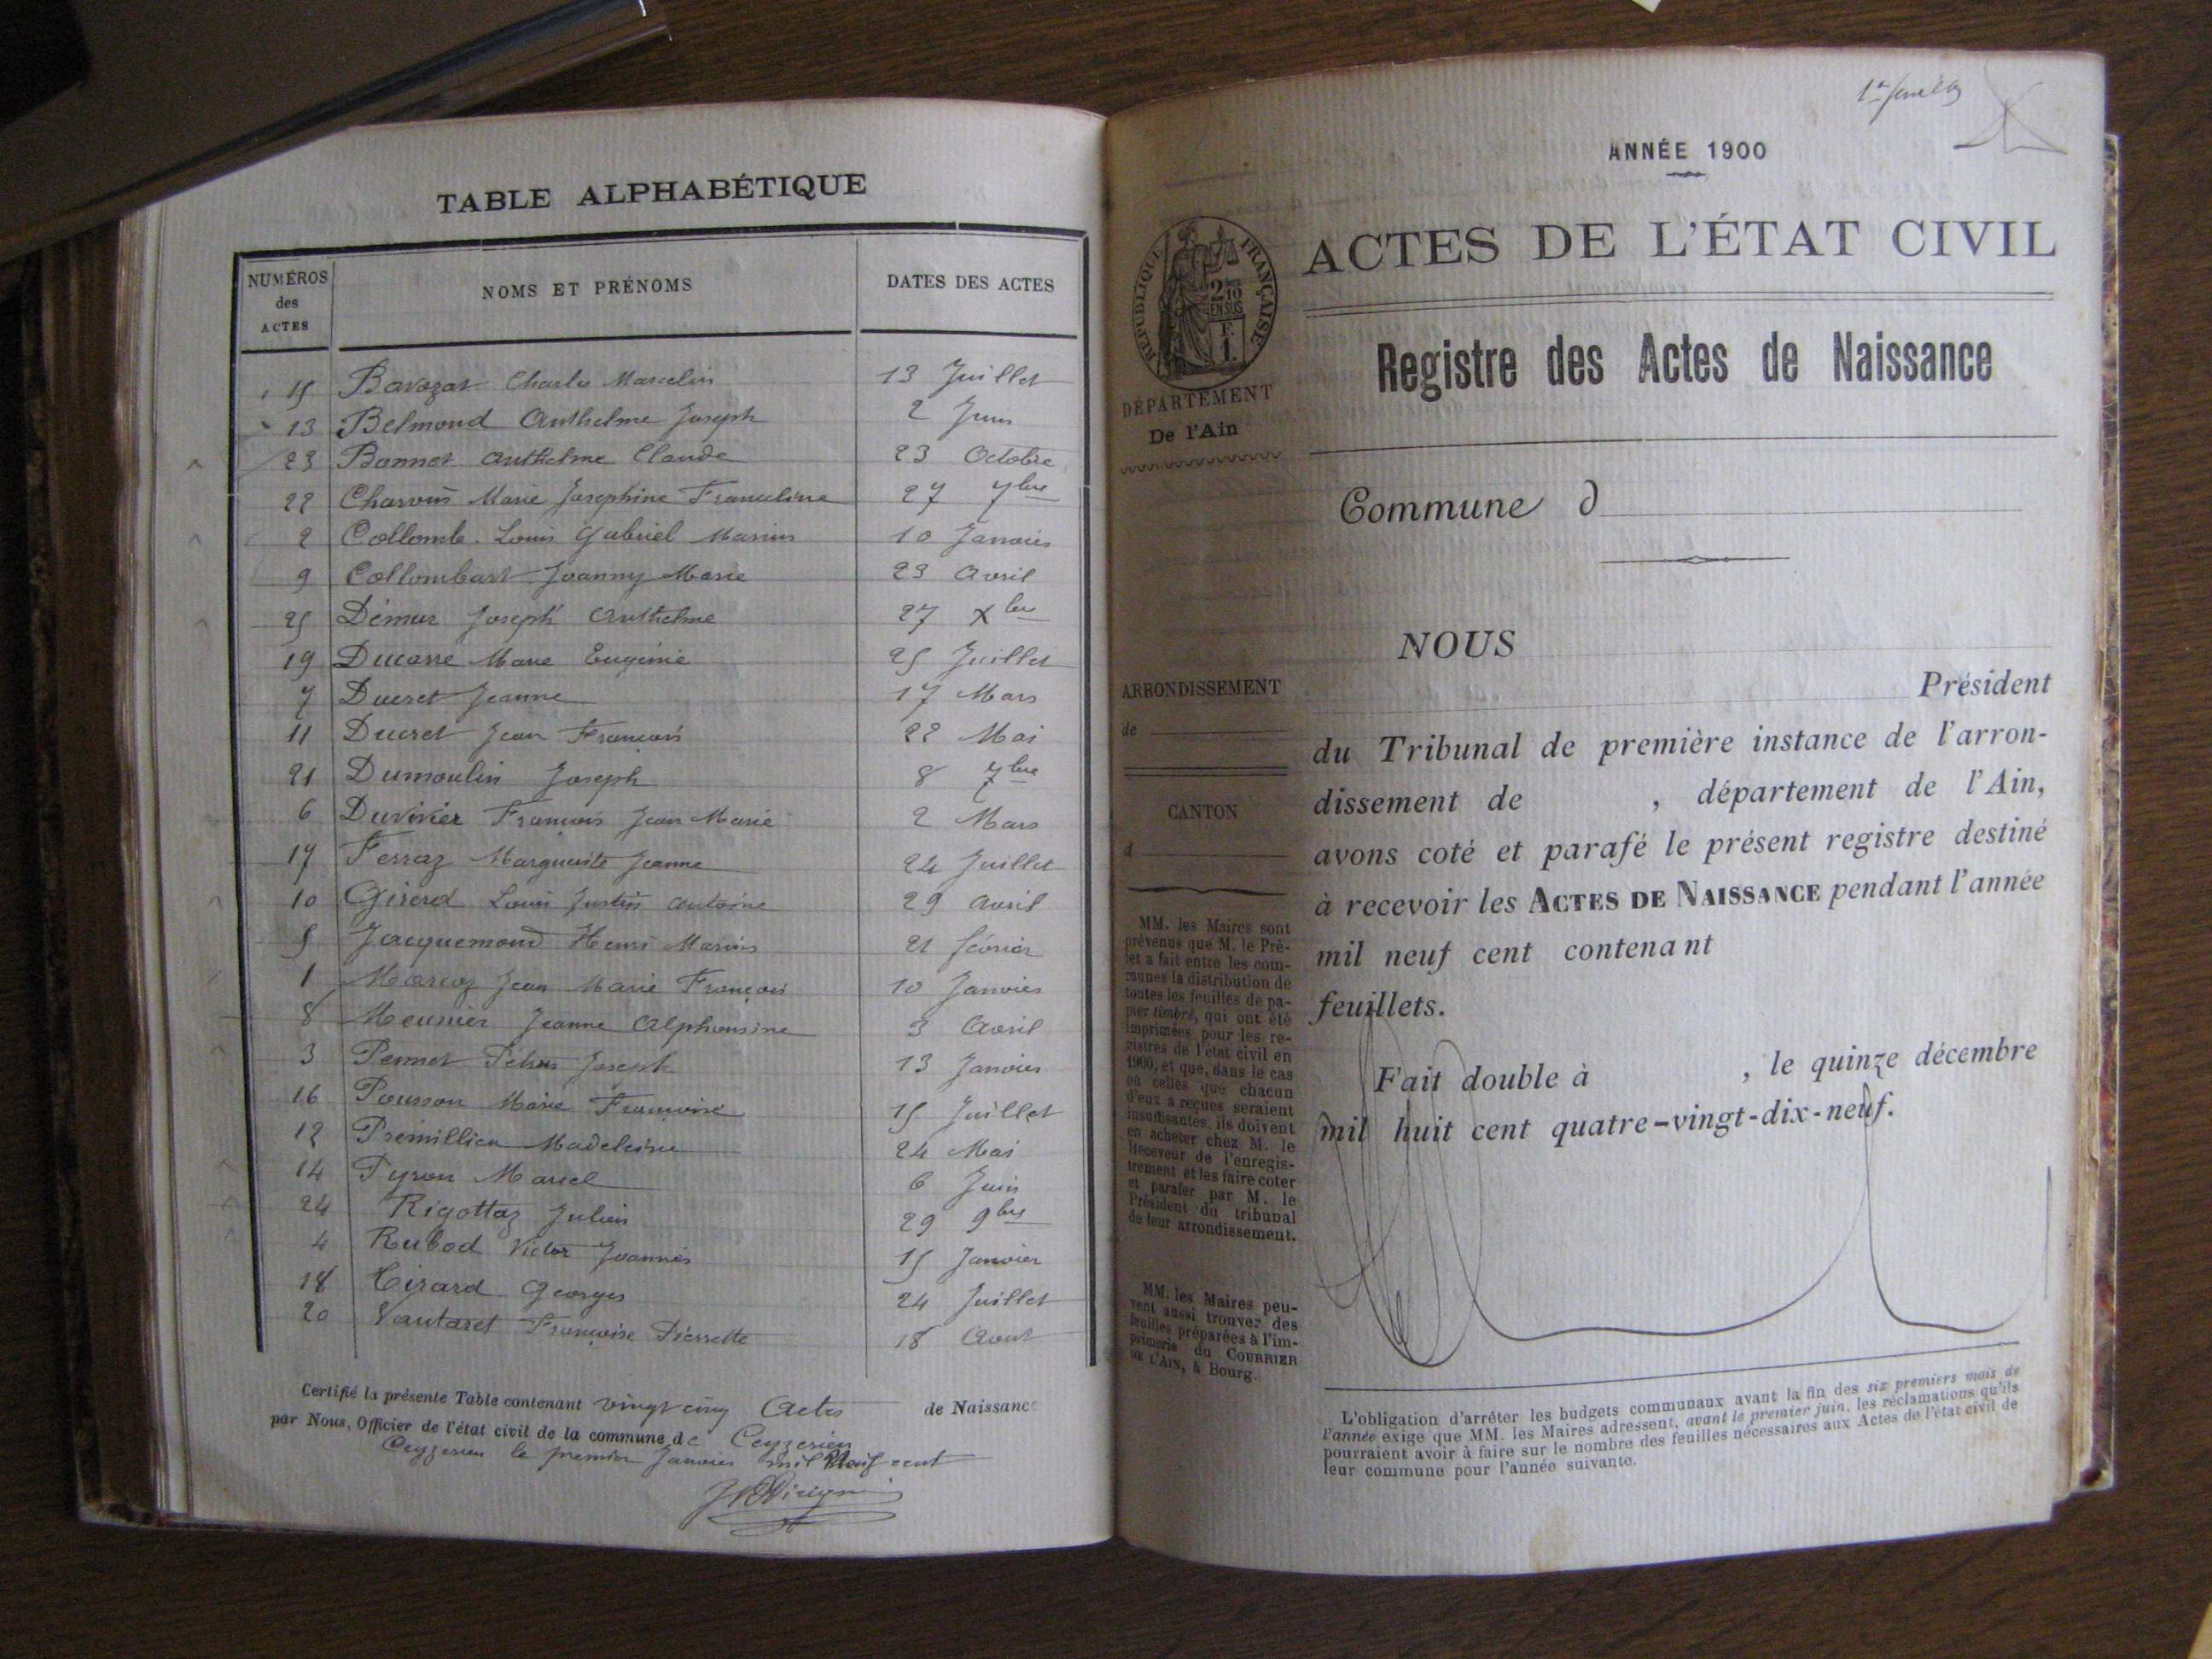 TABLE ALPHABÉTIQUE
NUMÉROS
des
ACTES
NOMS ET PRÉNOMS
DATES DES ACTES
15 Bavozat Charles Marcelin 13 Juillet
13 Belmond Anthelme Joseph 2 Juin
23 Bonnet Anthelme Claude 23 Octobre
22 Charvin Marie Josephine Franceline 27 7bre
2 Collomb Louis Gabriel Marius 10 Janvier
9 Collombart Joanny Marie 23 Avril
25 Démur Joseph Anthelme 27 Xbre
19 Ducarre Marie Eugénie 25 Juillet
7 Ducret Jeanne 17 Mars
11 Ducret Jean François 22 Mai
21 Dumoulin Joseph 8 7bre
6 Duvivier François Jean Marie 2 Mars
17 Ferraz Marguerite Jeanne 24 Juillet
10 Girerd Louis Justin Antoine 29 Avril
5 Jacquemond Henri Marius 21 février
1 Marcoz Jean Marie François 10 Janvier
8 Meunier Jeanne Alphonsine 3 Avril
3 Pennet Félix Joseph 13 Janvier
16 Pousson Marie Françoise 15 Juillet
12 Prémillieu Madeleine 24 Mai
14 Pyron Marcel 6 Juin
24 Rigottaz Julien 29 9bre
4 Rubod Victor Joannès 15 Janvier
18 Tirard Georges 24 Juillet
20 Vautaret Françoise Pierrette 18 Aout
Certifié la présente Table contenant vingt cinq Actes de Naissance
par Nous, Officier de l'état civil de la commune de Ceyzerieu
Ceyzerieu le premier Janvier mil neuf cent
1er feuillet
ANNÉE 1900
RÉPUBLIQUE FRANÇAISE
2/10
EN SUS
F.
1.
ACTES DE L'ÉTAT CIVIL
Registre des Actes de Naissance
DÉPARTEMENT
De l'Ain
Commune d
NOUS
Président
du Tribunal de première instance de l'arron-
dissement de , département de l'Ain,
avons coté et parafé le présent registre destiné
à recevoir les ACTES DE NAISSANCE pendant l'année
mil neuf cent contenant
feuillets.
Fait double à , le quinze décembre
mil huit cent quatre-vingt-dix-neuf.
ARRONDISSEMENT
de
CANTON
d
MM. les Maires sont
prévenus que M. le Pré-
fet a fait entre les com-
munes la distribution de
toutes les feuilles de pa-
pier timbré, qui ont été
imprimées pour les re-
gistres de l'état civil en
1900, et que, dans le cas
où celles que chacun
d'eux a reçues seraient
insuffisantes, ils doivent
en acheter chez M. le
Receveur de l'enregis-
trement et les faire coter
et parafer par M. le
Président du tribunal
de leur arrondissement.
MM. les Maires peu-
vent aussi trouver des
feuilles préparées à l'im-
primerie du COURRIER
DE L'AIN, à Bourg.
L'obligation d'arrêter les budgets communaux avant la fin des six premiers mois de
l'année exige que MM. les Maires adressent, avant le premier juin, les réclamations qu'ils
pourraient avoir à faire sur le nombre des feuilles nécessaires aux Actes de l'état civil de
leur commune pour l'année suivante.